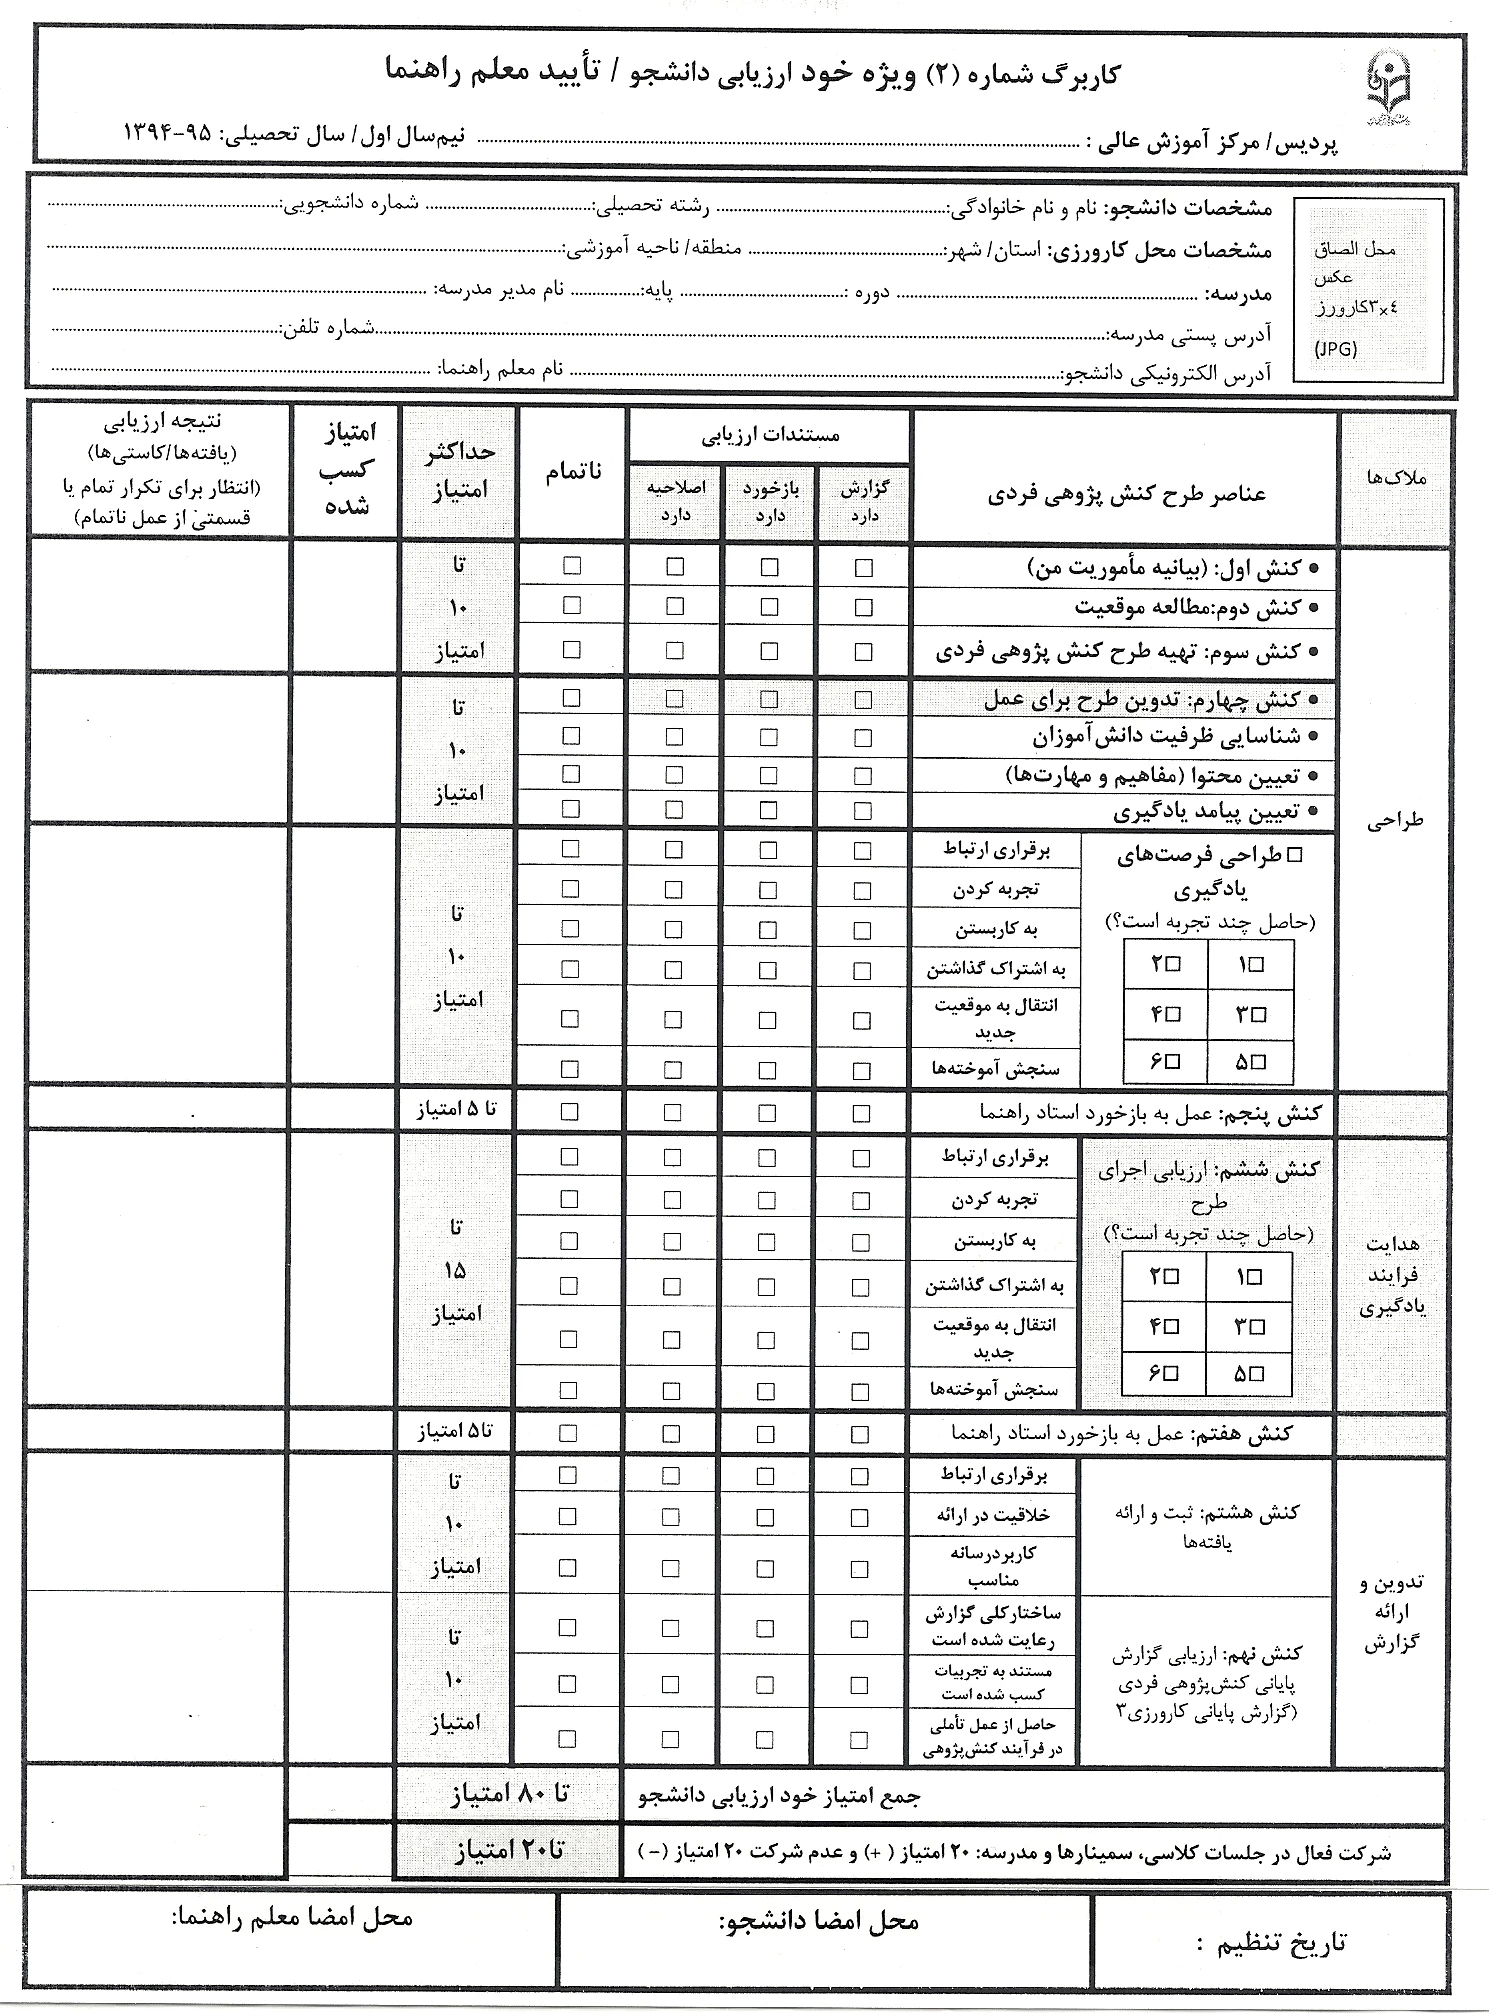 کاربرگ شماره (۲) ویژه خود ارزیابی دانشجو / تأیید معلم راهنما
پردیس/ مرکز آموزش عالی : ........ نیم‌سال اول/ سال تحصیلی: ۹۵-۱۳۹۴
محل الصاق
عکس
۳×۴کارورز
(JPG)
مشخصات دانشجو: نام و نام خانوادگی:........ رشته تحصیلی:........ شماره دانشجویی:........
مشخصات محل کارورزی: استان/ شهر:........ منطقه/ ناحیه آموزشی:........
مدرسه: ........ دوره :........ پایه:........ نام مدیر مدرسه: ........
آدرس پستی مدرسه:........شماره تلفن:........
آدرس الکترونیکی دانشجو:........ نام معلم راهنما: ........
ملاک‌ها
عناصر طرح کنش پژوهی فردی
مستندات ارزیابی
گزارش دارد
بازخورد دارد
اصلاحیه دارد
ناتمام
حداکثر امتیاز
امتیاز کسب شده
نتیجه ارزیابی
(یافته‌ها/کاستی‌ها)
(انتظار برای تکرار تمام یا
قسمتی از عمل ناتمام)
طراحی
• کنش اول: (بیانیه مأموریت من) □ □ □ □
• کنش دوم:مطالعه موقعیت □ □ □ □
• کنش سوم: تهیه طرح کنش پژوهی فردی □ □ □ □
تا
۱۰
امتیاز
• کنش چهارم: تدوین طرح برای عمل □ □ □ □
• شناسایی ظرفیت دانش‌آموزان □ □ □ □
• تعیین محتوا (مفاهیم و مهارت‌ها) □ □ □ □
• تعیین پیامد یادگیری □ □ □ □
تا
۱۰
امتیاز
□ طراحی فرصت‌های
یادگیری
(حاصل چند تجربه است؟)
□۱ □۲
□۳ □۴
□۵ □۶
برقراری ارتباط □ □ □ □
تجربه کردن □ □ □ □
به کاربستن □ □ □ □
به اشتراک گذاشتن □ □ □ □
انتقال به موقعیت
جدید □ □ □ □
سنجش آموخته‌ها □ □ □ □
تا
۱۰
امتیاز
کنش پنجم: عمل به بازخورد استاد راهنما □ □ □ □ تا ۵ امتیاز
هدایت
فرایند
یادگیری
کنش ششم: ارزیابی اجرای
طرح
(حاصل چند تجربه است؟)
□۱ □۲
□۳ □۴
□۵ □۶
برقراری ارتباط □ □ □ □
تجربه کردن □ □ □ □
به کاربستن □ □ □ □
به اشتراک گذاشتن □ □ □ □
انتقال به موقعیت
جدید □ □ □ □
سنجش آموخته‌ها □ □ □ □
تا
۱۵
امتیاز
کنش هفتم: عمل به بازخورد استاد راهنما □ □ □ □ تا۵ امتیاز
تدوین و
ارائه
گزارش
کنش هشتم: ثبت و ارائه
یافته‌ها
برقراری ارتباط □ □ □ □
خلاقیت در ارائه □ □ □ □
کاربردرسانه
مناسب □ □ □ □
تا
۱۰
امتیاز
کنش نهم: ارزیابی گزارش
پایانی کنش‌پژوهی فردی
(گزارش پایانی کارورزی۳
ساختارکلی گزارش
رعایت شده است □ □ □ □
مستند به تجربیات
کسب شده است □ □ □ □
حاصل از عمل تأملی
در فرآیند کنش‌پژوهی □ □ □ □
تا
۱۰
امتیاز
جمع امتیاز خود ارزیابی دانشجو تا ۸۰ امتیاز
شرکت فعال در جلسات کلاسی، سمینارها و مدرسه: ۲۰ امتیاز ( +) و عدم شرکت ۲۰ امتیاز (-) تا۲۰ امتیاز
تاریخ تنظیم :
محل امضا دانشجو:
محل امضا معلم راهنما: